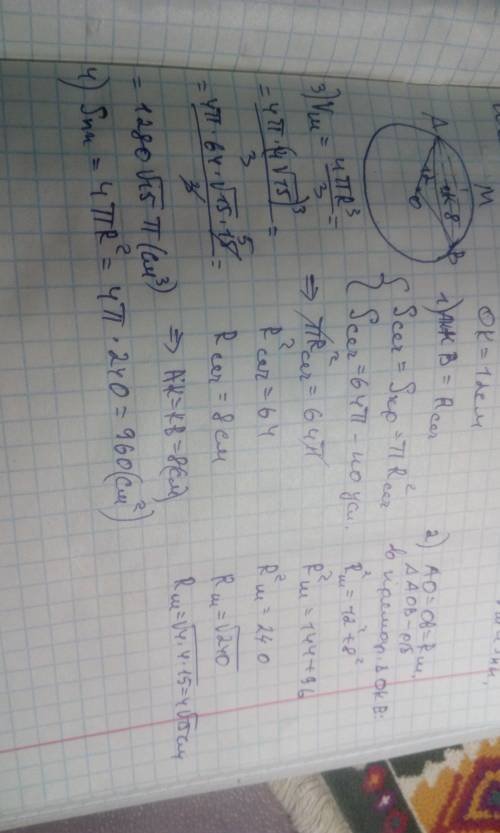 M
A
B
K
8
O
OK = 12см
1) KB = Rсеч
Sсеч = Sкр = πR²сеч
Sсеч = 64π - по усл.
⇒ πR²сеч = 64π
R²сеч = 64
Rсеч = 8см
⇒ AK = KB = 8(см)
2) AO = OB = Rш.
ΔAOB - р/б
в прямоуг. ΔOKB:
R²ш = 12² + 8²
R²ш = 144 + 96
R²ш = 240
Rш = √240
Rш = √4·4·15 = 4√15 см
3) Vш = 4πR³/3 =
= 4π·(4√15)³/3 =
= 4π·64·√15·15 5/3 =
= 1280√15 π (см³)
4) Sпп = 4πR² = 4π·240 = 960(см²)